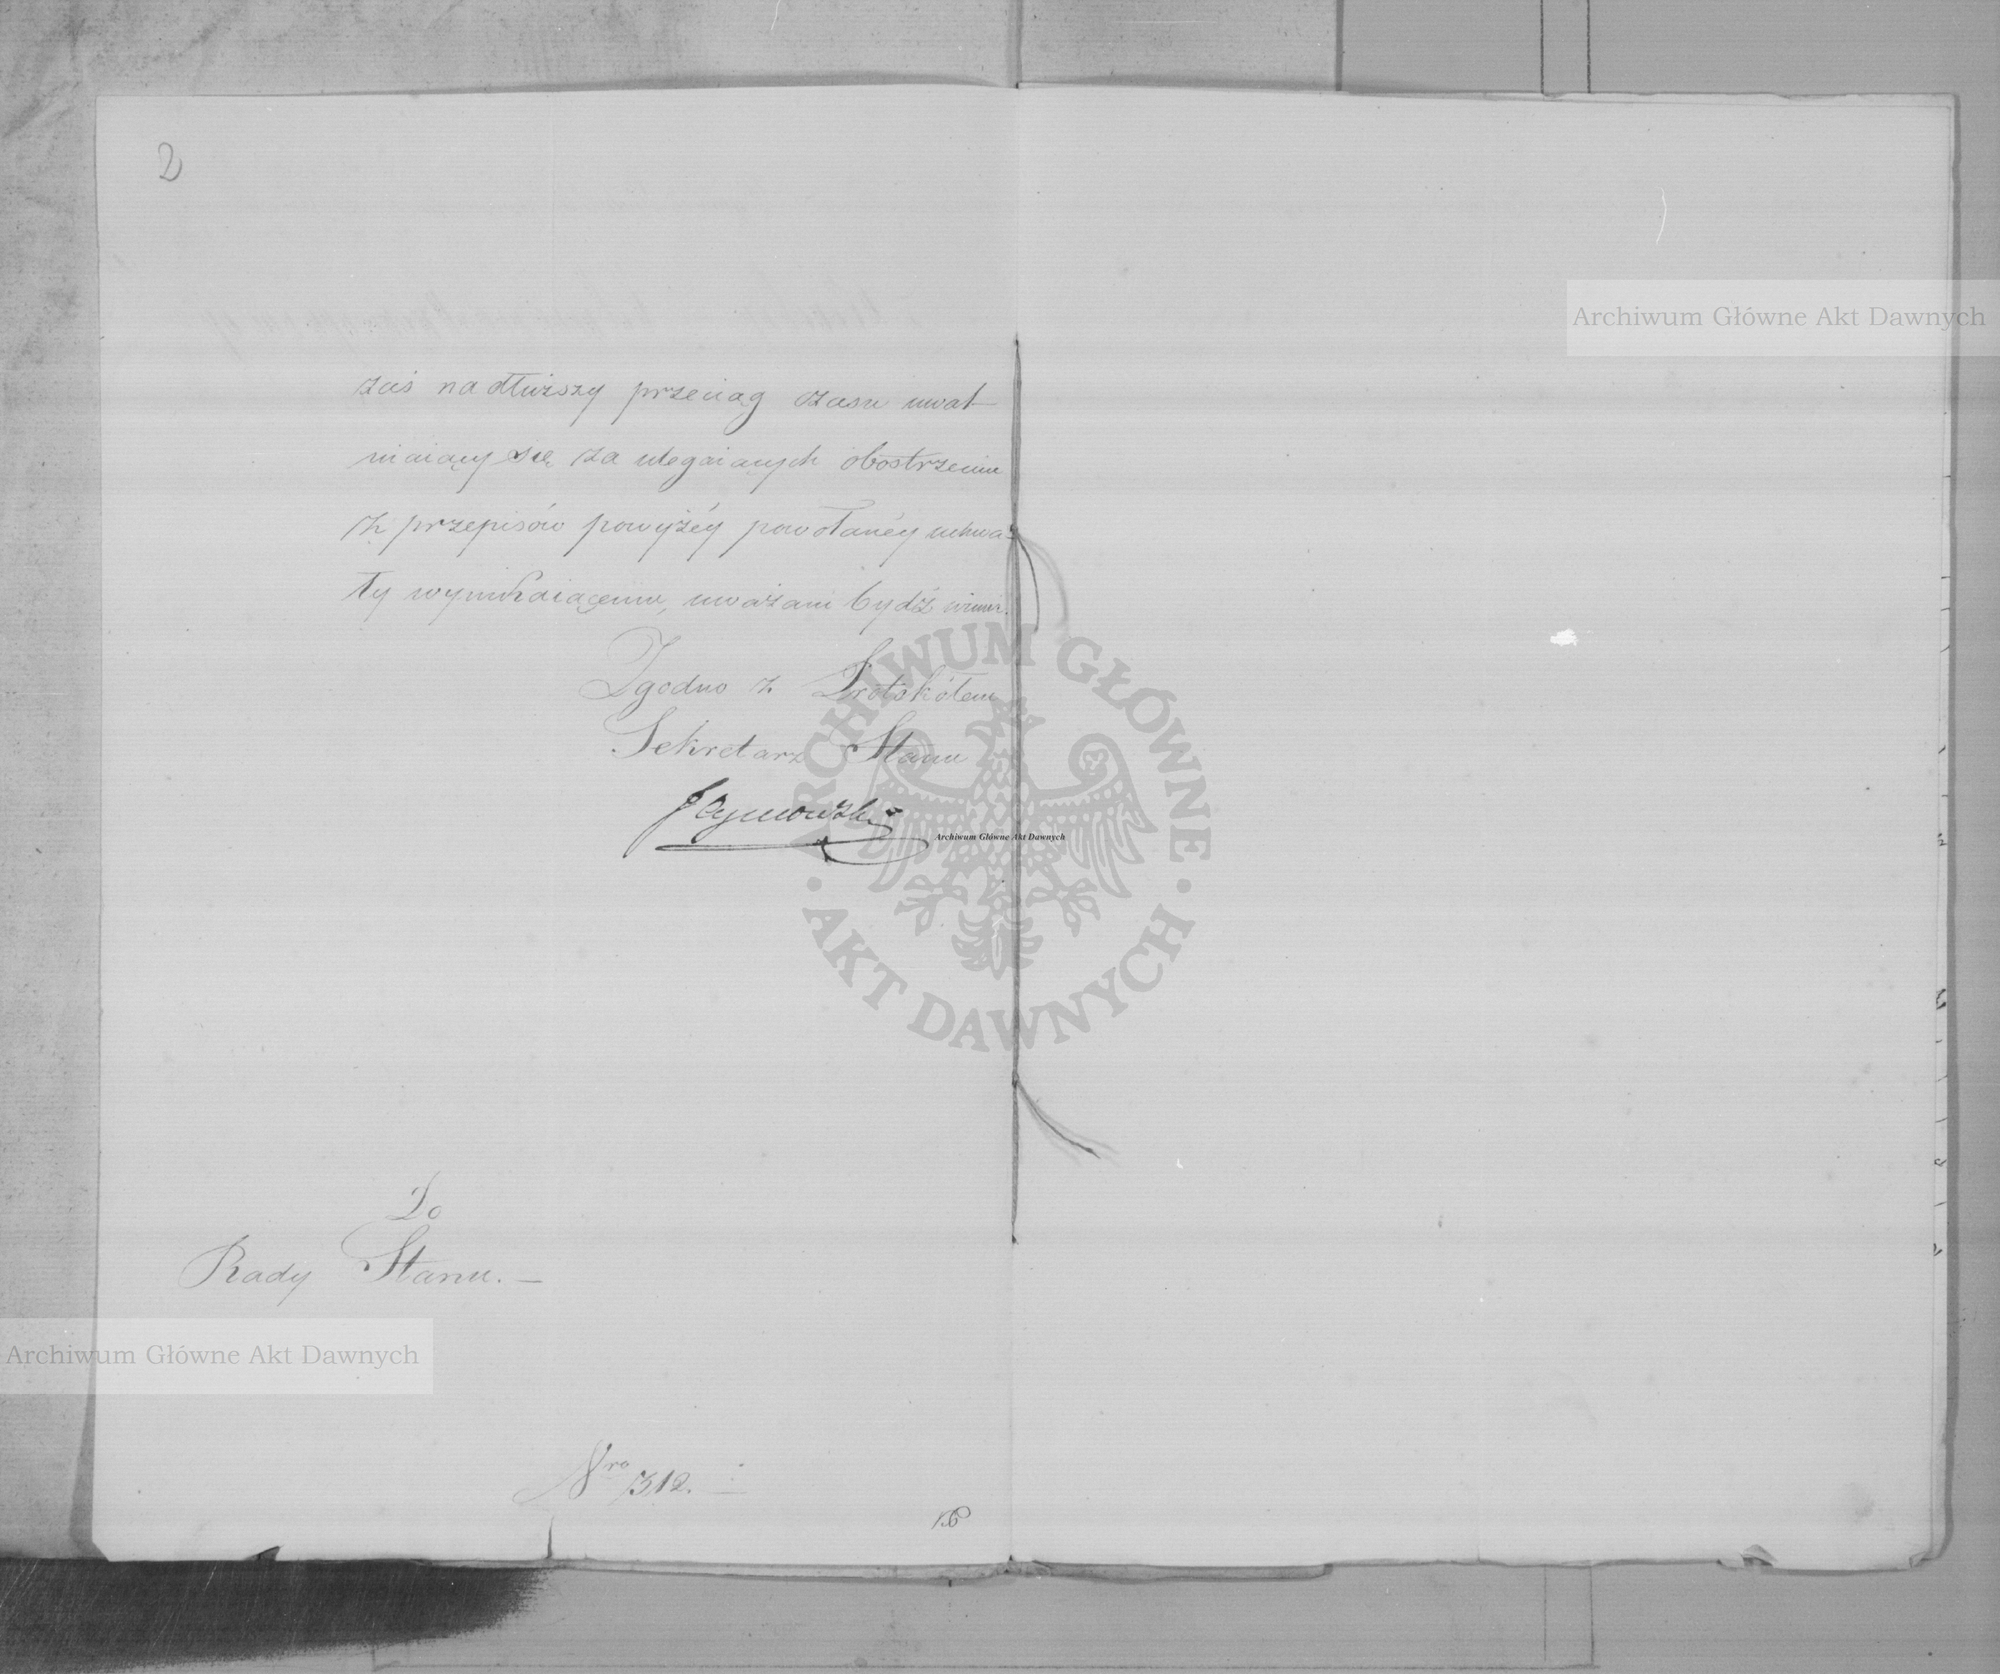 2
zaś na dłuższy przeciąg czasu uwal-
niaiący się za ulegaiących obostrzeniu
z przepisów powyżéy powołanéy uchwa-
ły wynikaiącemu, uważani bydź winni.
Zgodno z Protokółem
Sekretarz Stanu
JTymowski
Do
Rady Stanu. —
Nro 1312.
Archiwum Główne Akt Dawnych
Archiwum Główne Akt Dawnych
Archiwum Główne Akt Dawnych
ARCHIWUM GŁÓWNE
· AKT DAWNYCH ·